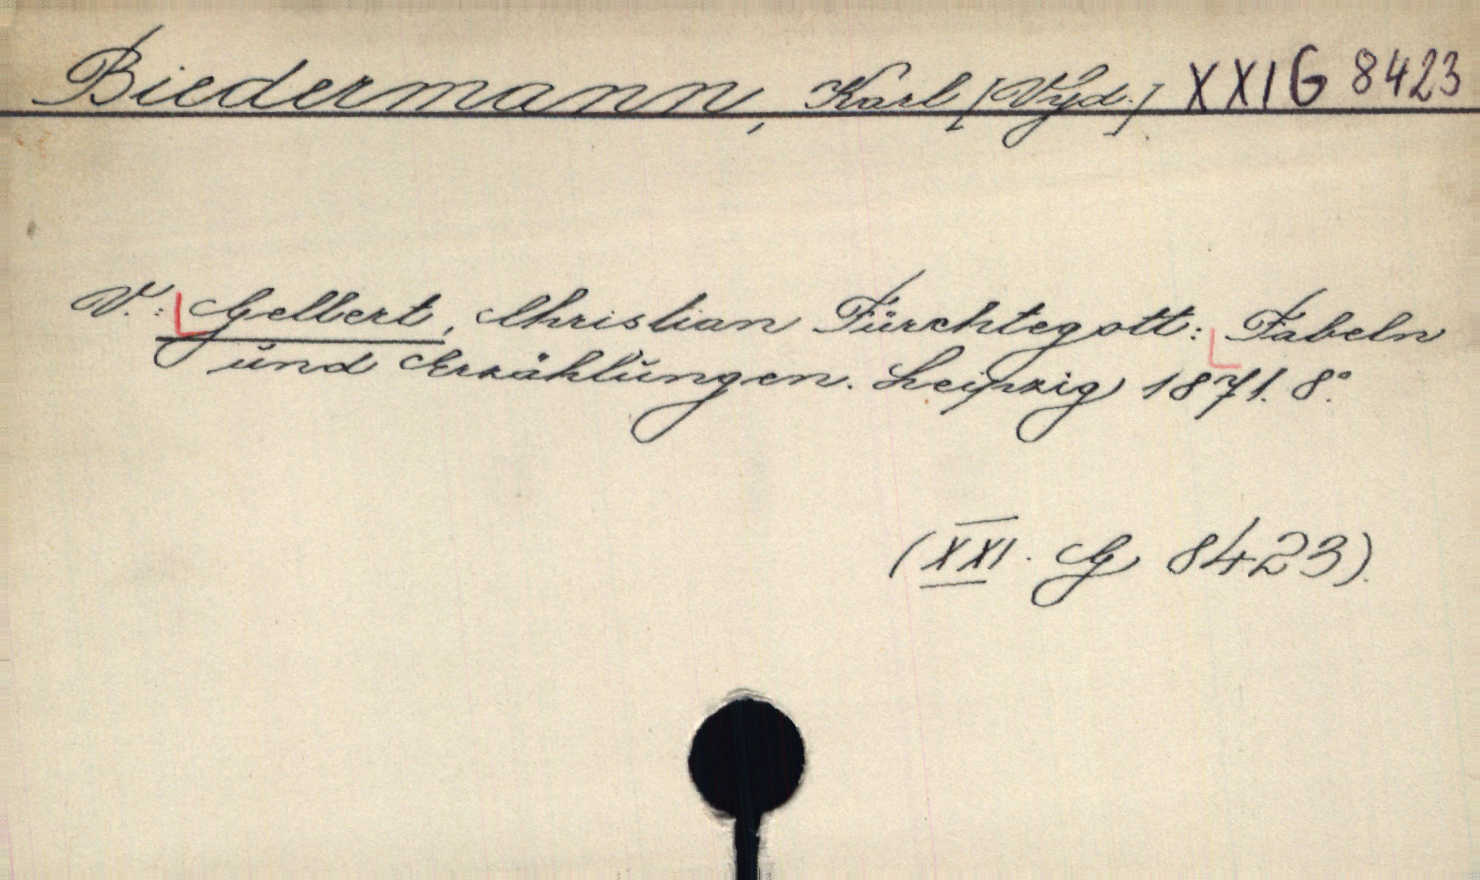 Biedermann, Karl [Vyd.] XXI G 8423
V.: Gellert, Christian Fürchtegott: Fabeln
und Erzählungen. Leipzig 1871. 8°.
(XXI. G 8423).